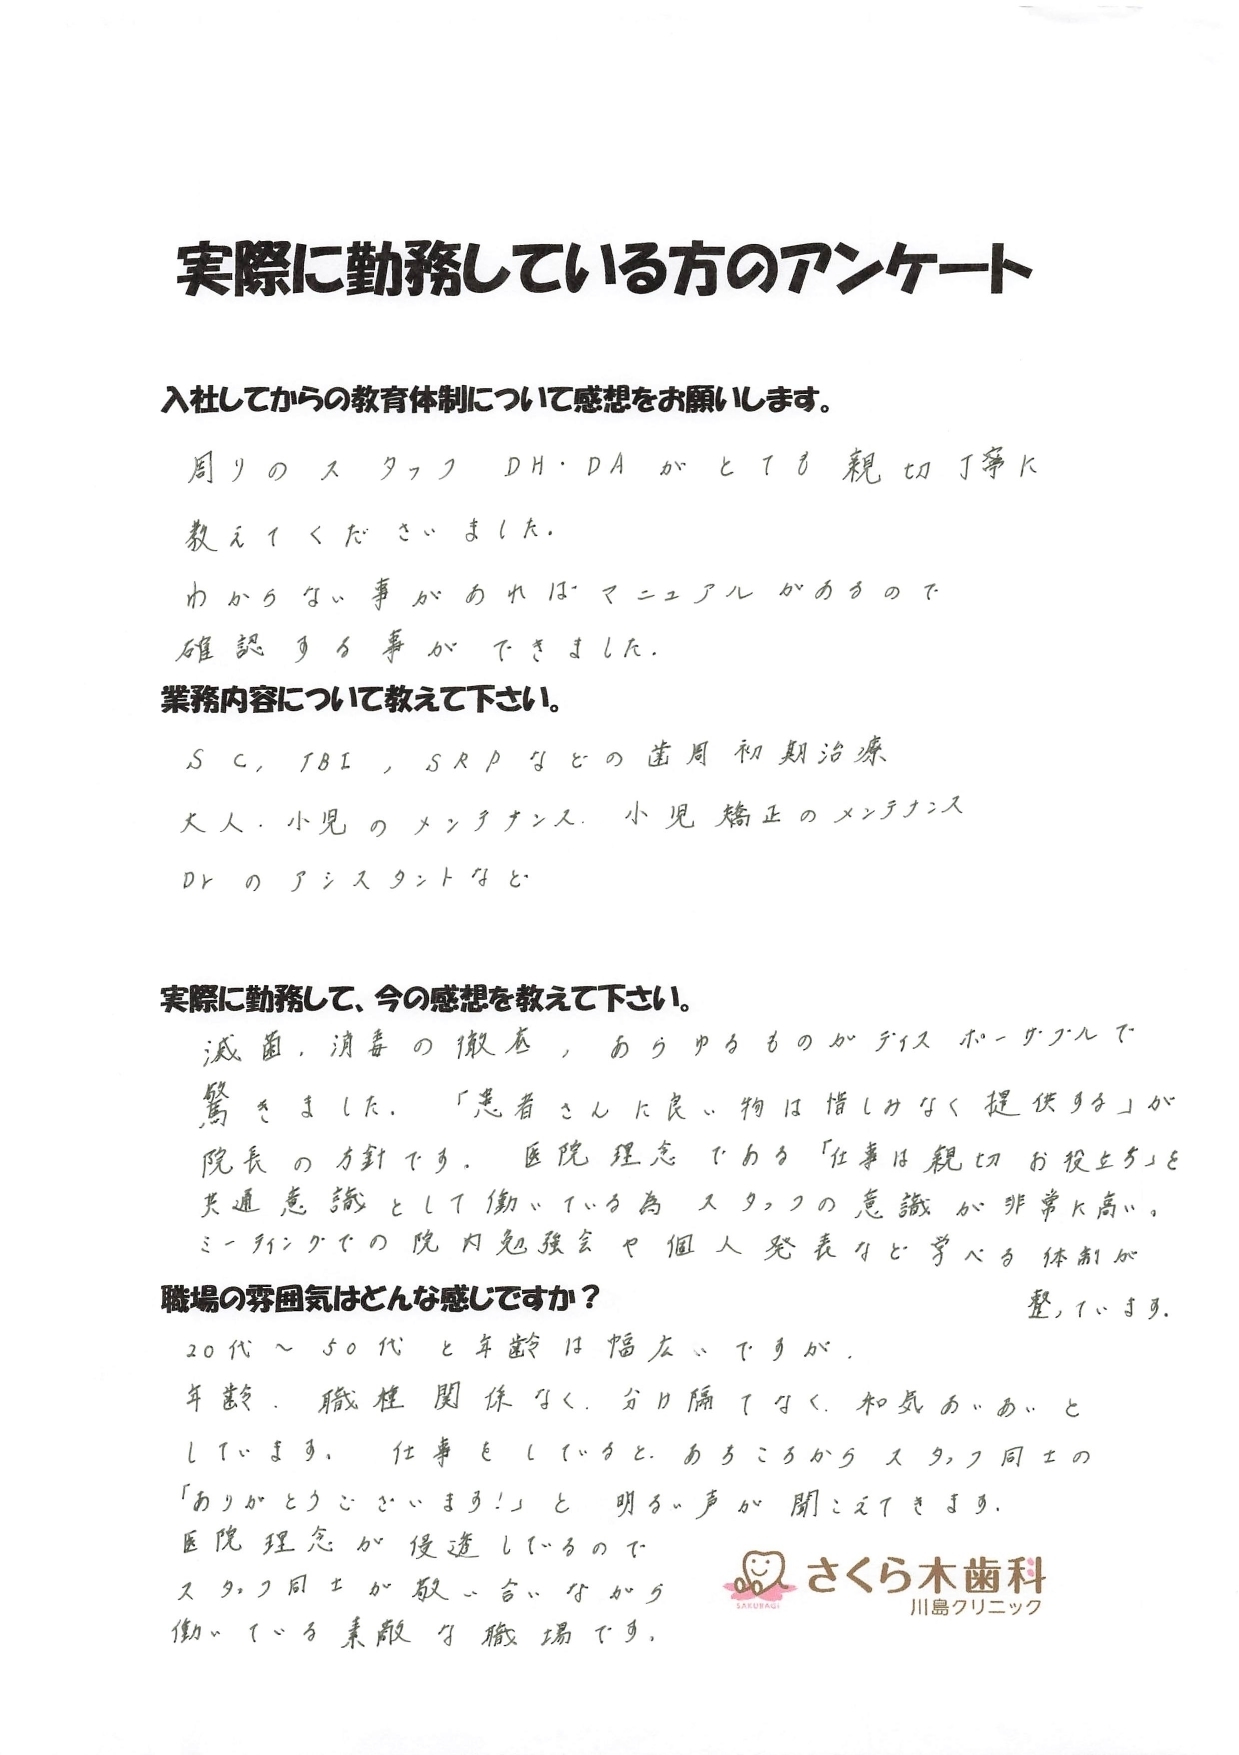 実際に勤務している方のアンケート
入社してからの教育体制について感想をお願いします。
周りのスタッフ DH・DAがとても親切丁寧に
教えてくださいました.
わからない事があればマニュアルがあるので
確認する事ができました.
業務内容について教えて下さい。
SC, TBI, SRPなどの歯周初期治療
大人・小児のメンテナンス. 小児矯正のメンテナンス
Drのアシスタントなど
実際に勤務して、今の感想を教えて下さい。
滅菌、消毒の徹底, あらゆるものがディスポーザブルで
驚きました. 「患者さんに良い物は惜しみなく提供する」が
院長の方針です. 医院理念である「仕事は親切お役立ち」を
共通意識として働いている為スタッフの意識が非常に高い。
ミーティングでの院内勉強会や個人発表など学べる体制が
整っています.
職場の雰囲気はどんな感じですか？
20代～50代と年齢は幅広いですが.
年齢、職種関係なく、分け隔てなく、和気あいあいと
しています。 仕事をしていると、あちこちからスタッフ同士の
「ありがとうございます!」と明るい声が聞こえてきます.
医院理念が浸透しているので
スタッフ同士が敬い合いながら
働いている素敵な職場です.
さくら木歯科
SAKURAGI
川島クリニック